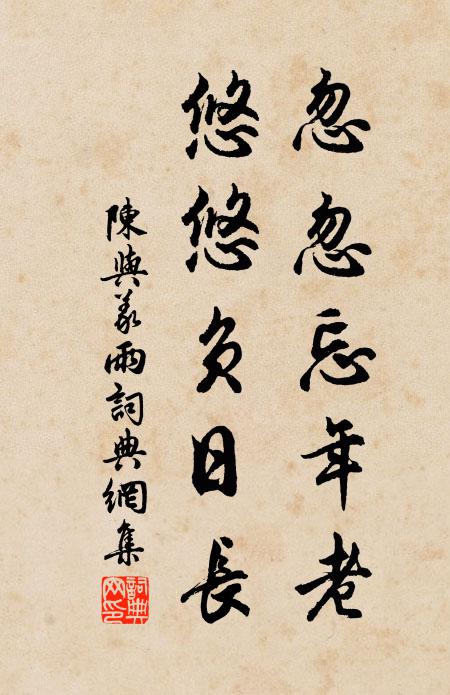 忽忽忘年老
悠悠负日長
陳與義雨詞典網集
詞典